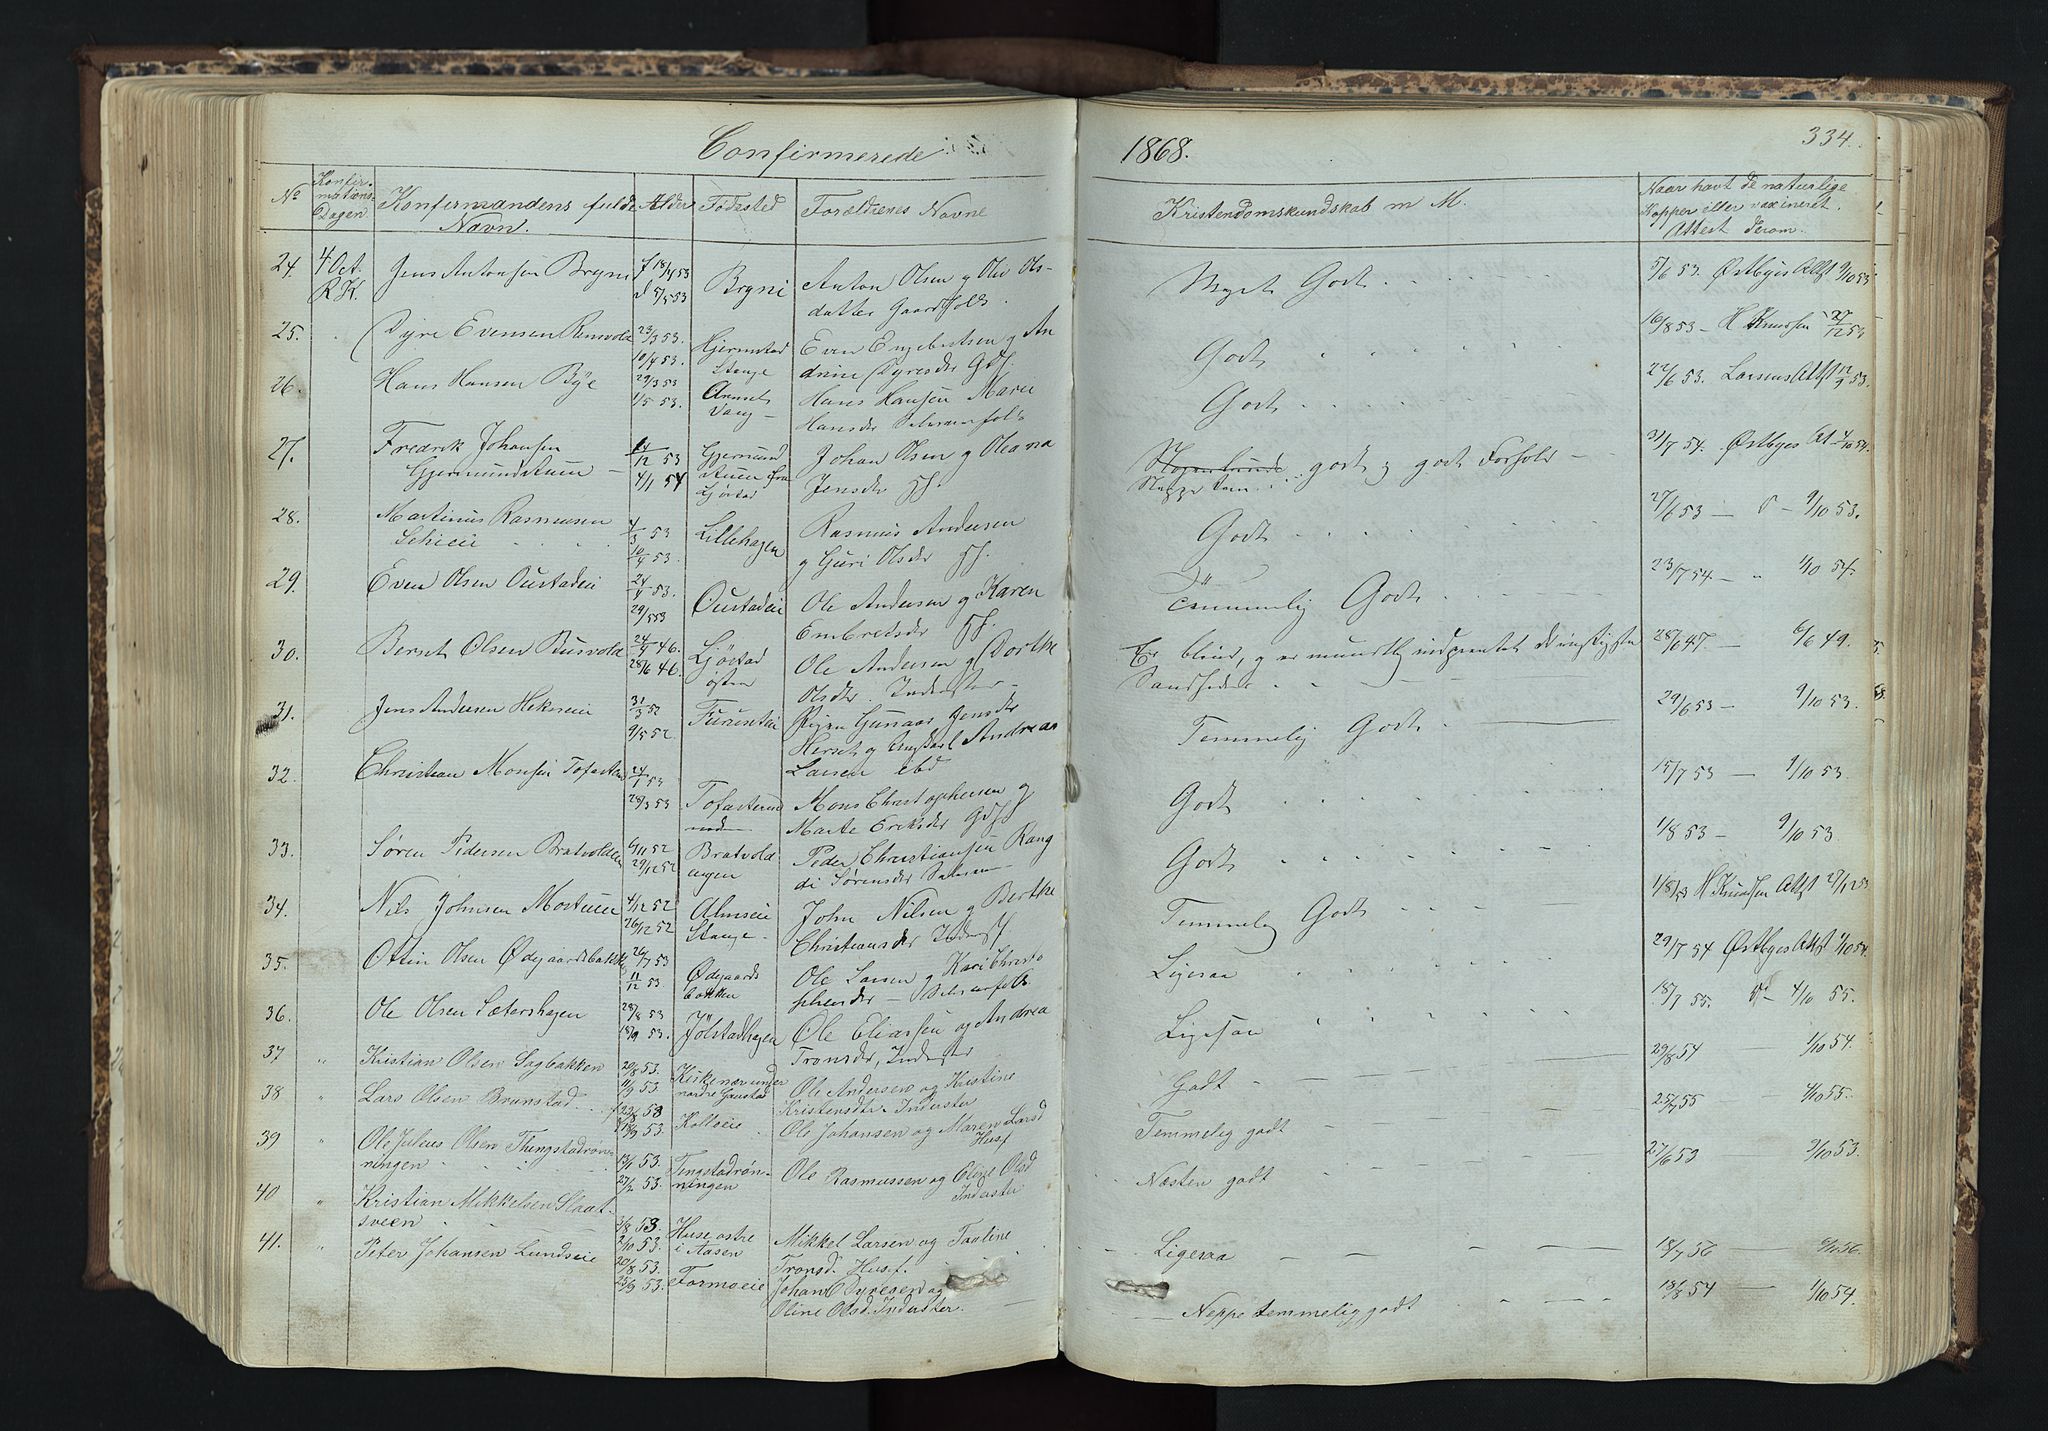 Confirmerede
1868.
334.
No
Konfir-
mations-
Dagen
Konfirmandens fulde
Navn.
Alder
Fødested
Forældrenes Navne
Kristendomskundskab m M.
Naar havt de naturlige
Kopper eller vaxineret.
Attest derom.
24. 4 Oct. Jens Antonsen Bryni f 18/4 53 Bryni Anton Olsen g Ols-
R.K. d 5/5 53 datter Gaardfolk
Meget Godt 5/6 53. Østbyes Attst 9/10 53
25. Dyre Evensen Rensvold 23/3 53. Hjermstad Even Engebretsen g An
10/4 53. Stange drine Dyresdr Gdf.
Godt 16/8 53 - H Knudsen 27/12 53
26. Hans Hansen Bye 29/3 53 Hans Hansen Marie
1/5 53. Vang - Hansdr
Godt 22/6 53. Larsens Attst 12/9 53.
27. Fredrik Johansen 12 53 Gjermund Johan Olsen g Oleana
Gjermundstuen - 4/1 54 stuen Jensdr Hf.
godt g godt Forhold - 31/7 54. Østbyes At 4/10 54.
28. Martinus Rasmussen 4/3 53 Lillehagen Rasmus Andersen
10/4 53. g Guri Olsdr Hf.
Godt 27/6 53 - 9/10 53.
29. Even Olsen Oustadeie 24/4 53. Oustadeie Ole Andersen g Karen
29/5 53 Embretsdr Hf.
Temmelig Godt 23/7 54 - 1/10 54.
30. Bernt Olsen Busvold 24/4 46. Ljøstad Ole Andersen g Dorthe
28/6 46. østen Olsdr. Inderster -
Er blind, g er mundtlig indprentet de vigtigste 28/6 47. - 6/6 49.
Sandheder
31. Jens Andersen Hekneeie 31/3 52 Pigen Gunaar Jensdr
9/5 52 Herset g Ungkarl Andreas
Larsen ibd
Temmelig Godt 29/6 53 - 9/10 53.
32. Christian Monsen Tofasten 24/1 53
28/3 53 Mons Christophersen g
Marte Eriksdr Gdf
Godt 15/7 53 - 9/10 53.
33. Søren Pedersen Bratvolden 6/11 52 Bratvold Peder Christiansen Rang
29/12 52 engen di Sørensdr
Godt 1/8 53 - 9/10 53.
34. Nils Johnsen Mostuen 4/12 52 Almseie John Nilsen g Berthe
26/12 52 Stange - Christiansdr Inderst
Temmelig Godt 1/8 53 H Knudsen Attst 27/12 53
35. Ottin Olsen Ødegaardsbakken 26/7 53 Ødegaards Ole Larsen g Kari Christo
11/12 53 bakken phersdr -
Ligesaa 29/7 54 Østbyes Attst 1/10 54.
36. Ole Olsen Sætershagen 28/8 53 Jølstadhagen Ole Eliassen og Andrea
18/9 53. Tronsdr, Inderster
Ligesaa 18/7 55. 4/10 55.
37 „ Kristian Olsen Sagbakken 20/8 53. Kirkenær under Ole Andersen og Kristine
11/9 53. nordre Gaustad Kristensdtr. Inderster
Godt - 29/8 54 - 1/10 54.
38 „ Lars Olsen Brunstad f 23/8 53 Kolloeie Ole Johansen og Maren Larsd
18/9 53. Husf
Temmelig godt - 25/7 55 - 4/10 55.
39 „ Ole Julius Olsen Thingstadrøn- 13/1 53. Tingstadrøn- Ole Rasmussen og Eline Olsd
ningen 27/2 53. ningen Inderster
Næsten godt 27/6 53 9/10 53.
40 „ Kristian Mikkelsen Slaat- 3/8 53 Huse, østre Mikkel Larsen og Taaline
sveen 2/10 53. i Aasen Tronsd. Husf.
Ligesaa 18/7 56 -
41. „ Peter Johansen Lundseie 20/8 53. Formoeie Johan Dyresen og
25/9 53. Oline Olsd. Inderster.
Neppe temmelig godt 18/8 54 - 1/10 54.